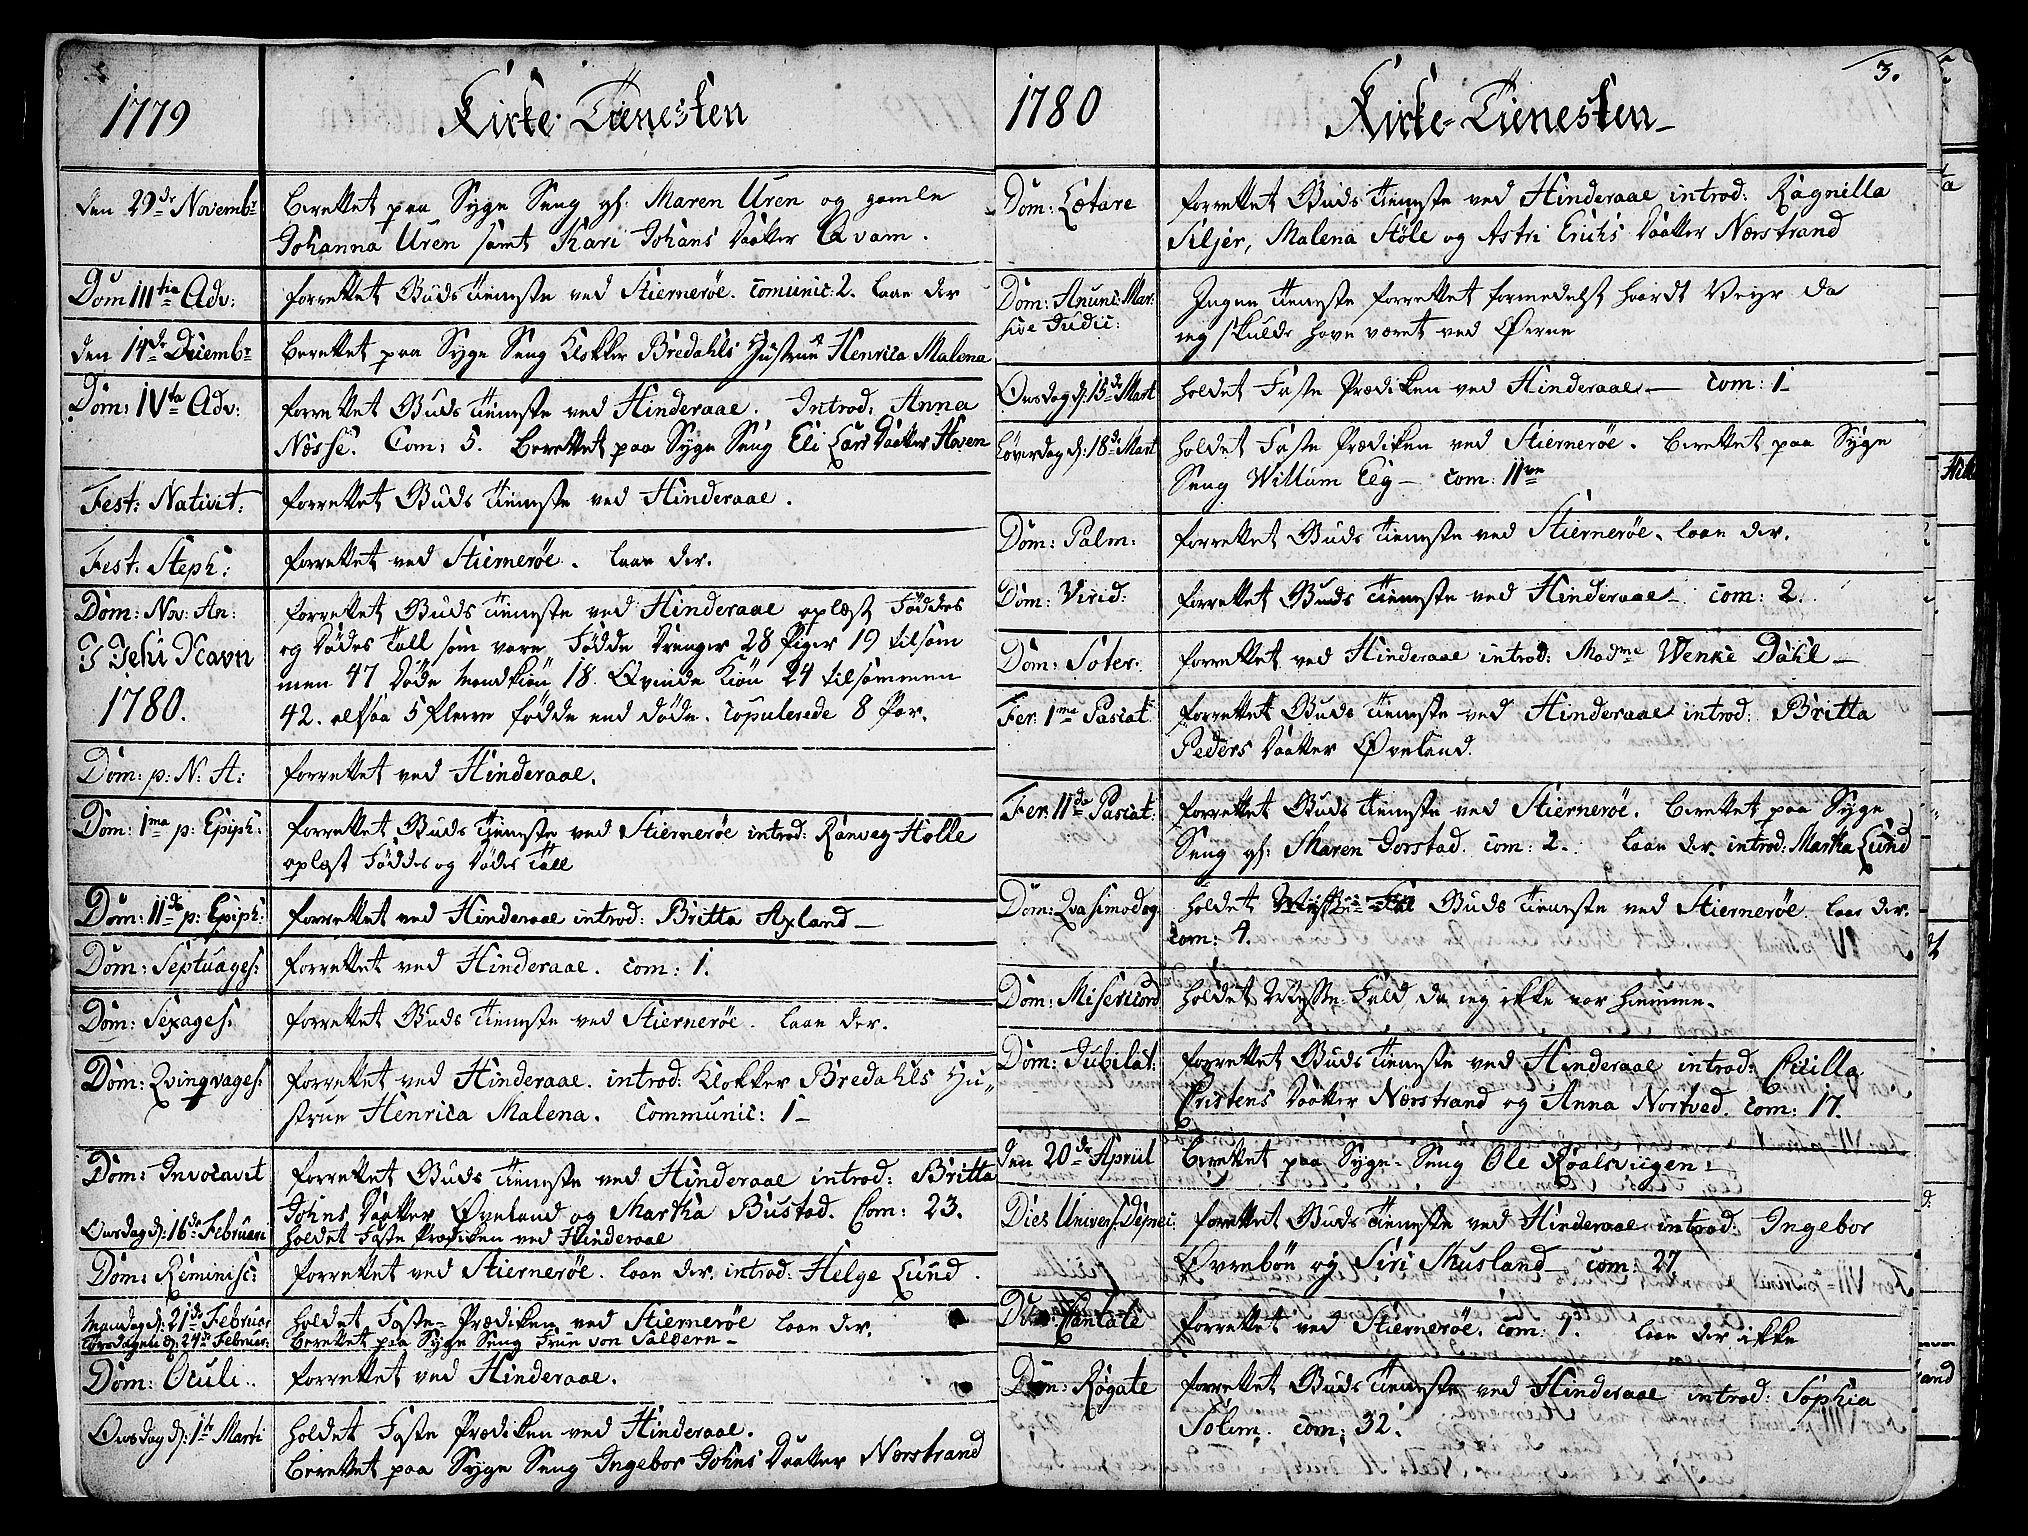 1779
Kirke-Tienesten
den 29de Novembr
berettet paa Syge Seng gl: Maren Uren og gamle
Johanna Uren samt Kari Johans Daatter Qvam.
Dom IIItia Adv:
forrettet Guds Tieneste ved Stiernerøe. comunic: 2. laae der
den 14de Decembr
berettet paa Syge Seng Klokker Bredahls Hustrue Henrica Malena
Dom: IVta Adv:
forrettet Guds Tieneste ved Hinderaae. Introd: Anna
Næsse. Com: 5. berettet paa Syge Seng Eli Lars Daatter Hoven
Fest: Nativit:
forrettet Guds Tieneste ved Hinderaae.
Fest: Steph:
forrettet ved Stiernerøe. laae der.
Dom: Nov: An:
I Jesu Navn
1780.
forrettet Guds Tieneste ved Hinderaae oplæst Føddes
og Dødes Tall som vare Fødde Drenger 28 Piger 19 tilsam
men 47 Døde Mandkiøn 18. Qvinde Kiøn 24 tilsammen
42. altsaa 5 fleere fødde end døde. Copulerede 8 Par.
Dom: p: N: A:
forrettet ved Hinderaae.
Dom: 1ma p: Epiph:
forrettet Guds Tieneste ved Stiernerøe introd: Ranveg Holle
oplæst Føddes og Dødes Tall
Dom: IIda p: Epiph:
forrettet ved Hinderaae introd: Britta Axland
Dom: Septuages:
forrettet ved Hinderaae. com: 1.
Dom: Sexages:
forrettet Guds Tieneste ved Stiernerøe. laae der.
Dom: Qvingvages:
forrettet ved Hinderaae. introd: Klokker Bredahls Hu-
strue Henrica Malena. Communic: 1
Dom: Invocavit
forrettet Guds Tieneste ved Hinderaae introd: Britta
Johns Daatter Øveland og Martha Bustad. Com: 23.
Onsdag d: 16de Februari
holdet Faste Prædiken ved Hinderaae
Dom: Reminisc:
forrettet ved Stiernerøe. laae der. introd: Helge Lund.
Mandag d: 21de Februar
holdet Faste-Prædiken ved Stiernerøe laae der.
Torsdagen d: 24de Februar:
berettet paa Syge Seng Frue von Saldern
Dom: Oculi.
forrettet ved Hinderaae.
Onsdag d: 1ste Marti
holdet Faste Prædiken ved Hinderaae.
berettet paa Syge Seng Ingebor Johns Daatter Nærstrand
3.
1780
Kirke-Tienesten
Dom: Lætare
forrettet Guds Tieneste ved Hinderaae introd: Ragnilla
Siljer, Malena Støle og Astri Erichs Daatter Nærstrand
Dom: Anunc: Mar:
sive Judic:
Ingen Tieneste forrettet formedelst haardt Veyr da
ieg skulde have været ved Øerne
Onsdag d: 15de Mart
holdet Faste Prædiken ved Hinderaae com: 1
Løverdag d: 18de Mart
holdet Faste Prædiken ved Stiernerøe. berettet paa Syge
Seng Willum Eeg com: 11ve
Dom: Palm:
forrettet Guds Tieneste ved Stiernerøe. laae der.
Dom: Virid:
forrettet Guds Tieneste ved Hinderaae com: 2.
Dom: Soter:
forrettet ved Hinderaae introd: Madme Wenke Dahl
Fer: 1ma Pascat:
forrettet Guds Tieneste ved Hinderaae introd: Britta
Peders Daatter Øveland.
Fer: IIda Pascat:
forrettet Guds Tieneste ved Stiernerøe. berettet paa Syge
Seng gl: Maren Jorstad. com: 2. laae der. introd: Martha Lund
Dom: Qvasimodog
holdet Guds Tieneste ved Stiernerøe. laae der.
com: 4.
Dom: Misericord
holdet Messe-Fald, da ieg ikke var hiemme.
Dom: Jubilat:
forrettet Guds Tieneste ved Hinderaae introd: Cicilla
Cristens Daatter Nærstrand og Anna Nortved. com: 17.
den 20de Apriil
berettet paa Syge-Seng Ole Roalsviigen:
Dies Univers:
forrettet Guds Tieneste ved Hinderaae introd: Ingebor
Øvrebøn og Siri Musland com: 27
Dom: Cantate
forrettet ved Stiernerøe. com: 7. laae der ikke
Dom: Rogate
forrettet Guds Tieneste ved Hinderaae introd: Sophia
Solem. com: 32.